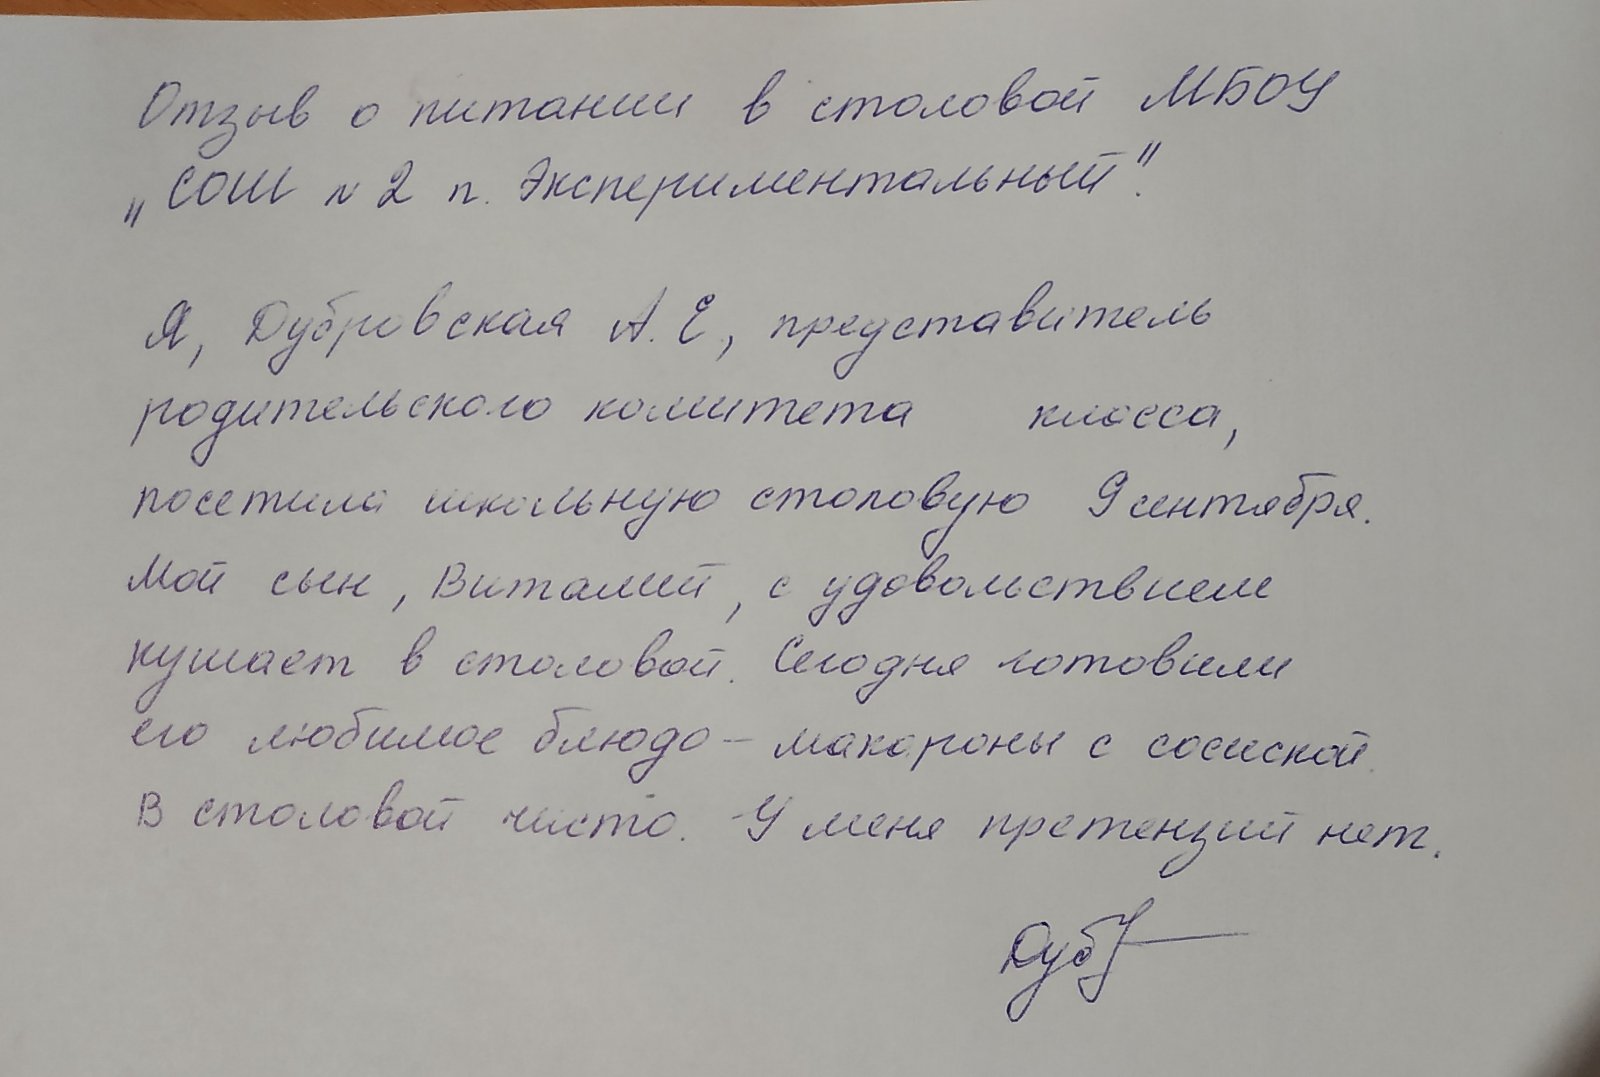 Отзыв о питании в столовой МБОУ
„СОШ № 2 п. Экспериментальный".
Я, Дубровская А. Е., представитель
родительского комитета класса,
посетила школьную столовую 9 сентября.
Мой сын, Виталий, с удовольствием
кушает в столовой. Сегодня готовили
его любимое блюдо - макароны с сосиской.
В столовой чисто. У меня претензий нет.